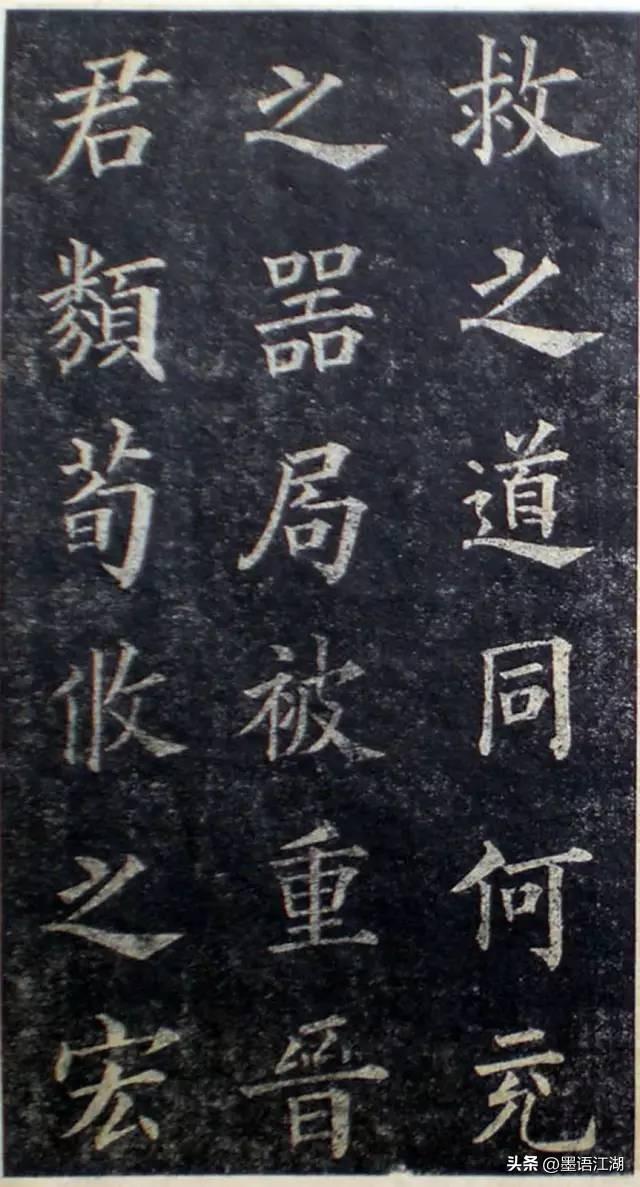 救之道同何充
之器局被重晉
君類荀攸之宏
头条 @墨语江湖